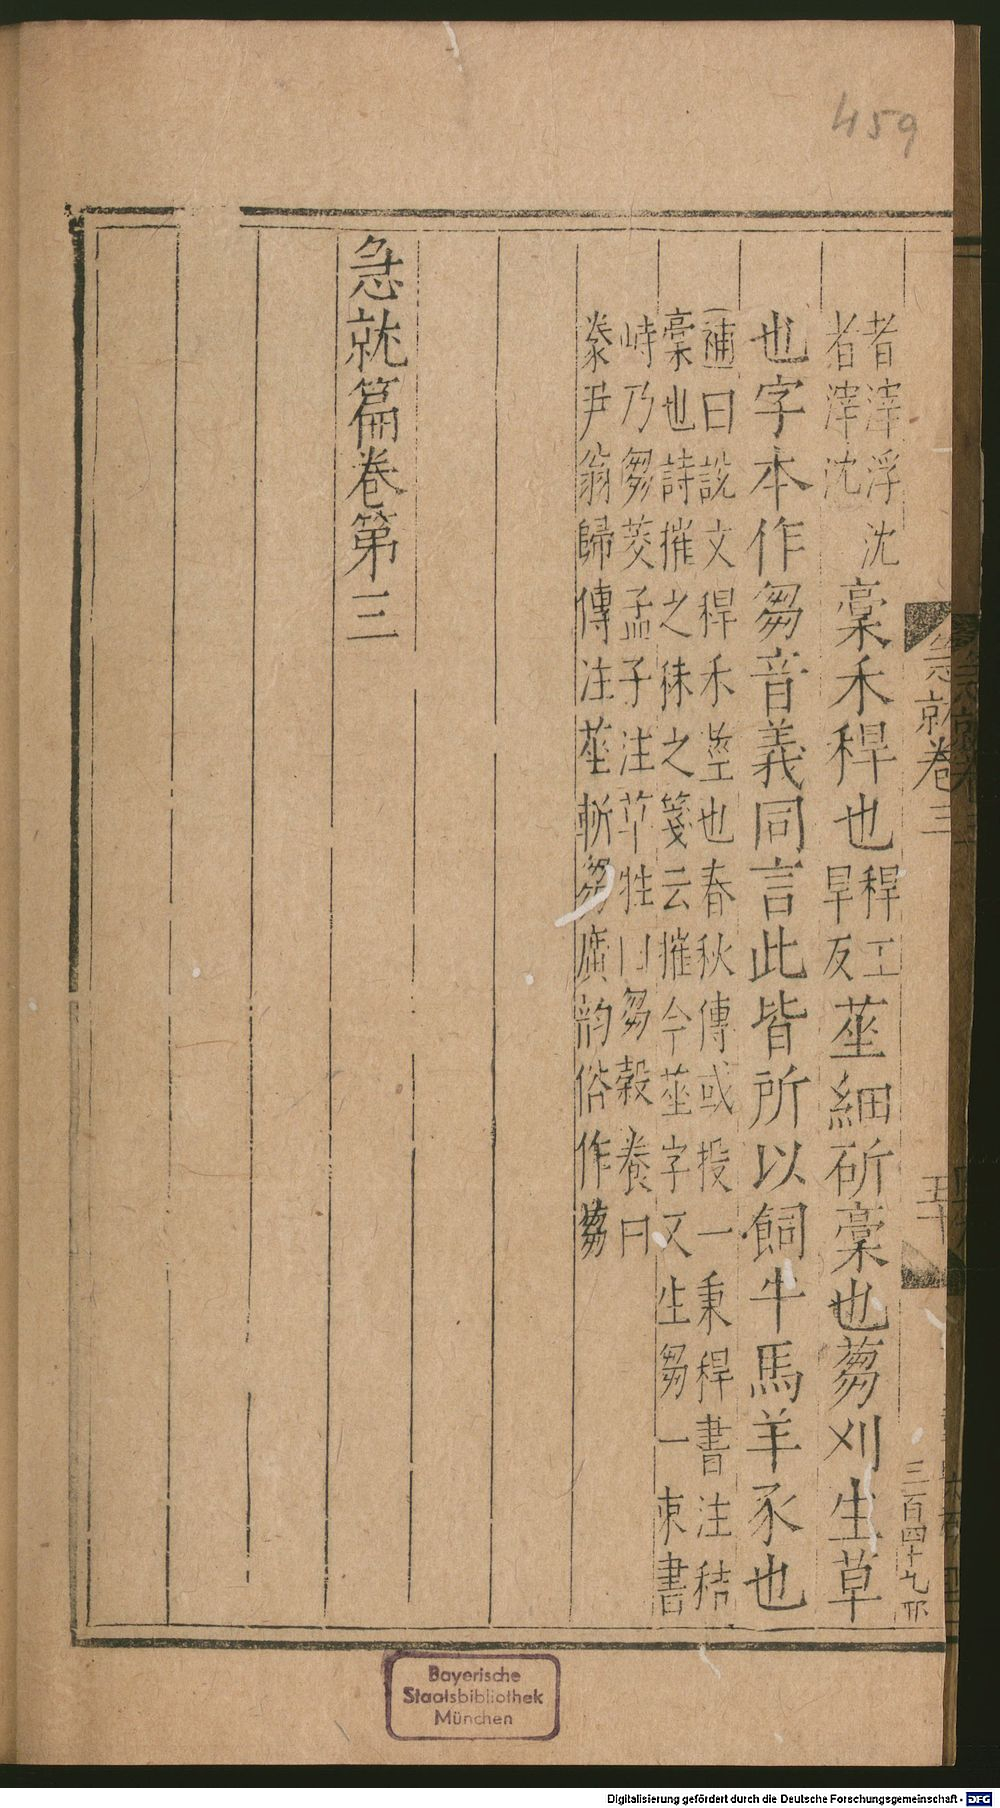 459
者滓浮沈
者滓沈
稾禾稈也
稈工
旱反
莝細斫稾也蒭刈生草
也字本作芻音義同言此皆所以飼牛馬羊豕也
補曰說文稈禾莖也春秋傳或投一秉稈書注秸
稾也詩摧之秣之箋云摧今莝字又生芻一束書
峙乃芻茭孟子注草牲曰芻穀養曰
豢尹翁歸傳注莝斬芻廣韵俗作蒭
急就篇卷第三
急就卷三
五十
三百四十九
Bayerische
Staatsbibliothek
München
Digitalisierung gefördert durch die Deutsche Forschungsgemeinschaft - DFG